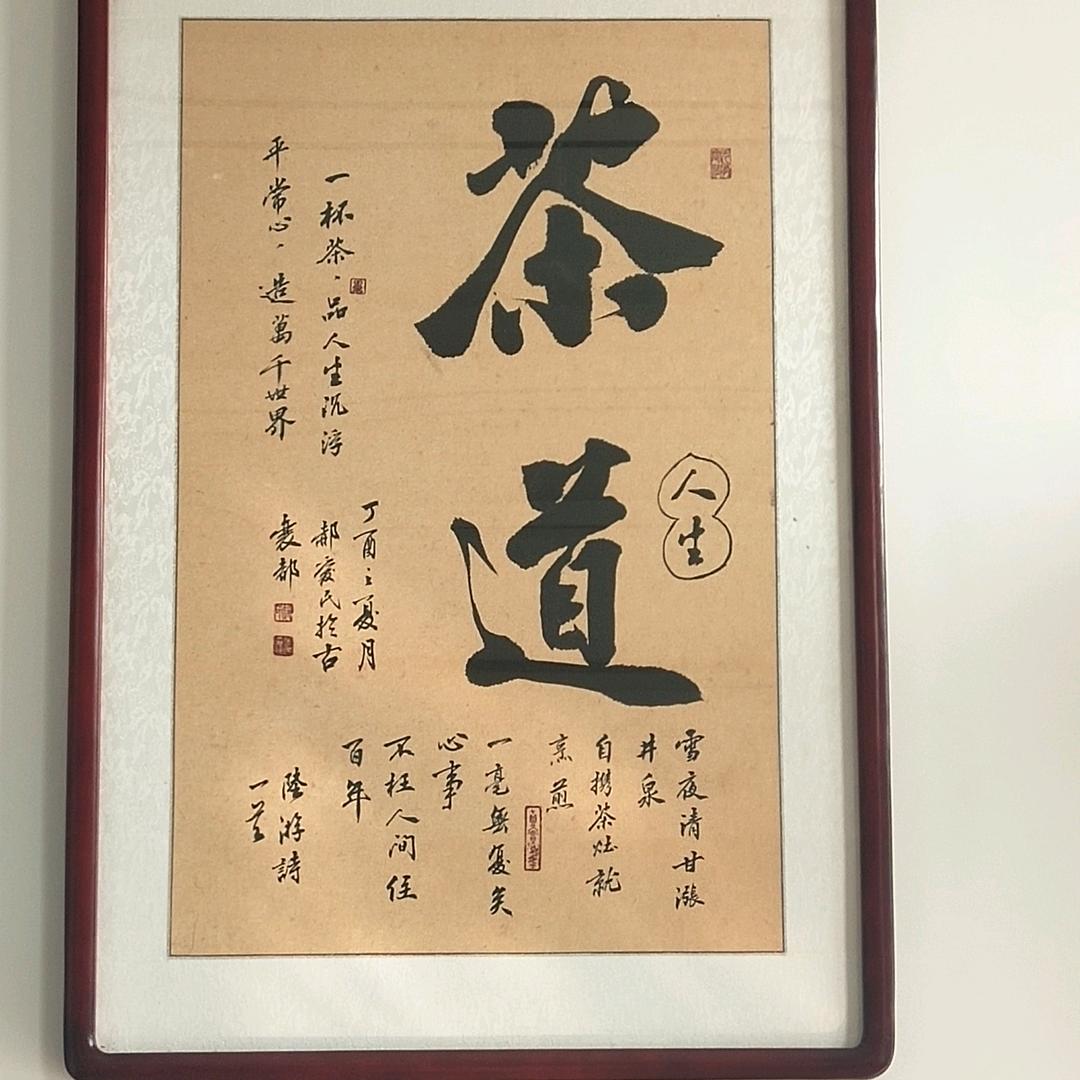 茶道
人生
一杯茶、品人生沉浮
平常心、造萬千世界
丁酉之夏月
郝愛民於古
襄都
雪夜清甘漲
井泉
自攜茶灶就
烹煎
一毫無復關
心事
不枉人間住
百年
陸游詩
一首